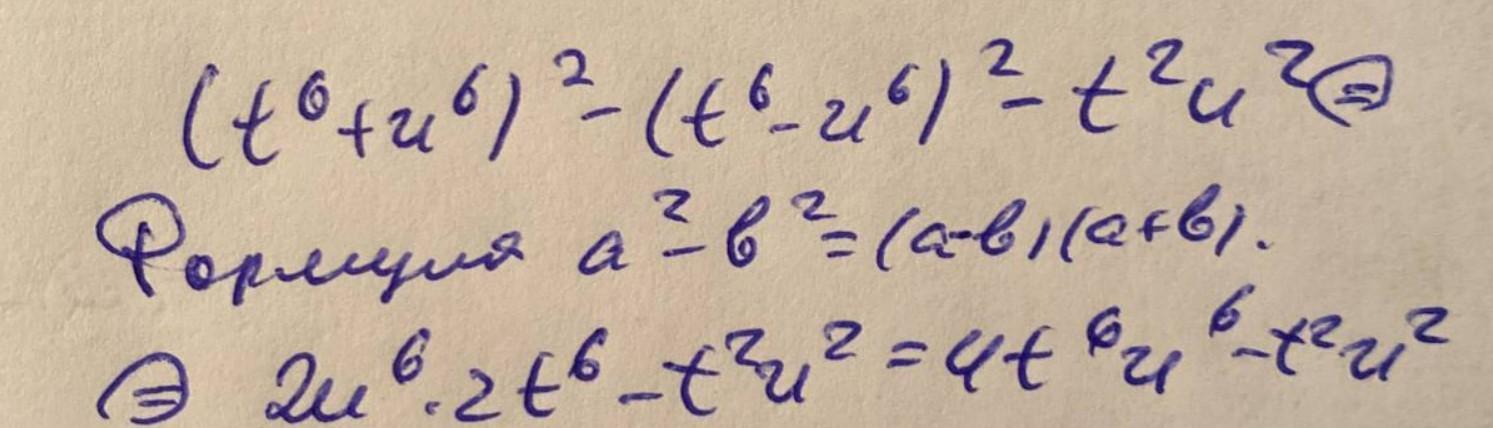 (t⁶+u⁶)²-(t⁶-u⁶)²-t²u²⊜
Формула a²-b²=(a-b)(a+b).
⊜ 2u⁶·2t⁶-t²u²=4t⁶u⁶-t²u²